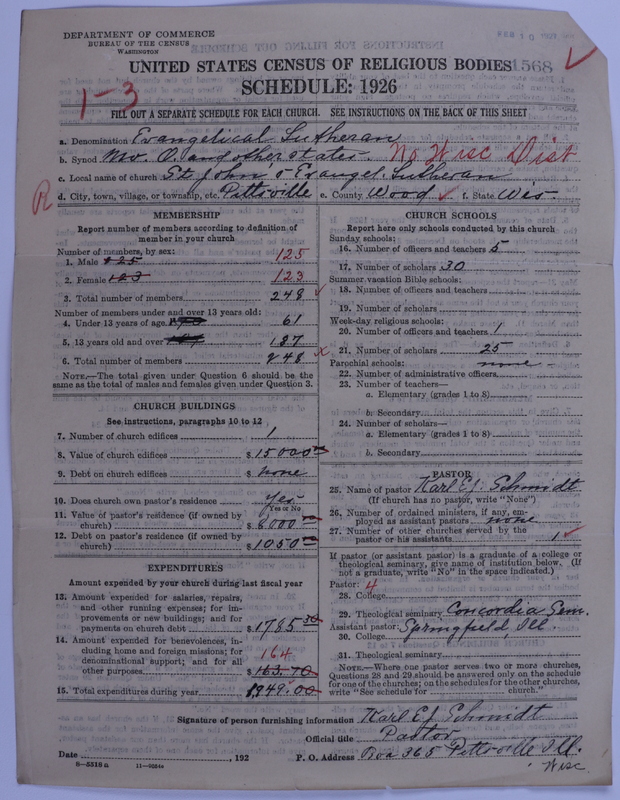 DEPARTMENT OF COMMERCE
BUREAU OF THE CENSUS
WASHINGTON
UNITED STATES CENSUS OF RELIGIOUS BODIES 1568
SCHEDULE: 1926
1-3
FILL OUT A SEPARATE SCHEDULE FOR EACH CHURCH. SEE INSTRUCTIONS ON THE BACK OF THIS SHEET
a. Denomination Evangelical Lutheran
b. Synod Mo. O. and other states No Wisc Dist
c. Local name of church St. John's Evangel. Lutheran
R d. City, town, village, or township, etc. Pittsville e. County Wood f. State Wis.
MEMBERSHIP
Report number of members according to definition of
member in your church
Number of members, by sex:
1. Male 125 125
2. Female 123 123
3. Total number of members 248
Number of members under and over 13 years old:
4. Under 13 years of age 61
5. 13 years old and over 187
6. Total number of members 248
NOTE.—The total given under Question 6 should be
same as the total of males and females given under Question 3.
CHURCH BUILDINGS
See instructions, paragraphs 10 to 12
7. Number of church edifices 1
8. Value of church edifices $15000 00
9. Debt on church edifices $ none
10. Does church own pastor's residence Yes
Yes or No
11. Value of pastor's residence (if owned by
church) $8000 00
12. Debt on pastor's residence (if owned by
church) $1050 00
EXPENDITURES
Amount expended by your church during last fiscal year
13. Amount expended for salaries, repairs,
and other running expenses; for im-
provements or new buildings; and for
payments on church debt $1785 30
14. Amount expended for benevolences, in-
cluding home and foreign missions; for
denominational support; and for all 164
other purposes $163.70
15. Total expenditures during year $1949.00
CHURCH SCHOOLS
Report here only schools conducted by this church
Sunday schools:
16. Number of officers and teachers 5
17. Number of scholars 30
Summer vacation Bible schools:
18. Number of officers and teachers
19. Number of scholars
Week-day religious schools:
20. Number of officers and teachers 1
21. Number of scholars 25
Parochial schools: none
22. Number of administrative officers
23. Number of teachers—
a. Elementary (grades 1 to 8)
b. Secondary
24. Number of scholars—
a. Elementary (grades 1 to 8)
b. Secondary
PASTOR
25. Name of pastor Karl EJ Schmidt
(If church has no pastor, write "None")
26. Number of ordained ministers, if any, em-
ployed as assistant pastors none
27. Number of other churches served by the
pastor or his assistants 1
If pastor (or assistant pastor) is a graduate of a college or
theological seminary, give name of institution below. (If
not a graduate, write "No" in the space indicated.)
Pastor: 4
28. College
29. Theological seminary Concordia Sem.
Assistant pastor: Springfield, Ill
30. College
31. Theological seminary
NOTE.—Where one pastor serves two or more churches,
Questions 28 and 29 should be answered only on the schedule
for one of the churches; on the schedules for the other churches,
write "See schedule for church."
Signature of person furnishing information Karl EJ Schmidt
Official title Pastor
Date , 192 P. O. Address Box 365 Pittsville Ill.
8-5318 a 11-9554a Wisc